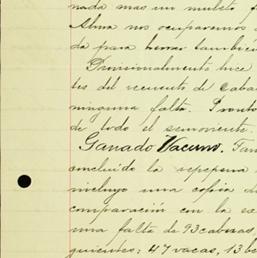 nada mas un muleto f
Alma nos ocuparemos
da para herrar tambien
Provisionalmente hice
tes del recuento de Caba
ninguna falta. Pronto
de todo el semoviente.
Ganado Vacuno. Tam
concluido la repepena
incluyo una copia d
comparación con la ex
una falta de 93 cabezas,
guientes: 47 vacas, 13 be